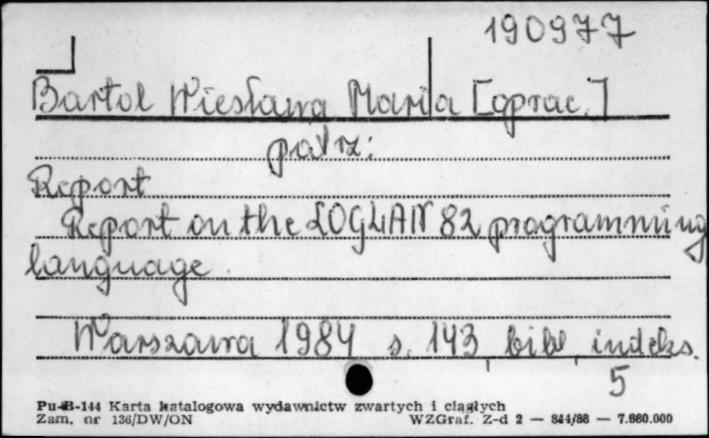 190977
Bartol Wiesława Maria [oprac.]
patrz:
Report
Report on the LOGLAN 82 programming
language.
Warszawa 1984 s. 143, bibl, indeks.
5
Pu-B-144 Karta katalogowa wydawnictw zwartych i ciągłych
Zam. nr 136/DW/ON WZGraf. Z-d 2 — 844/88 — 7.880.000